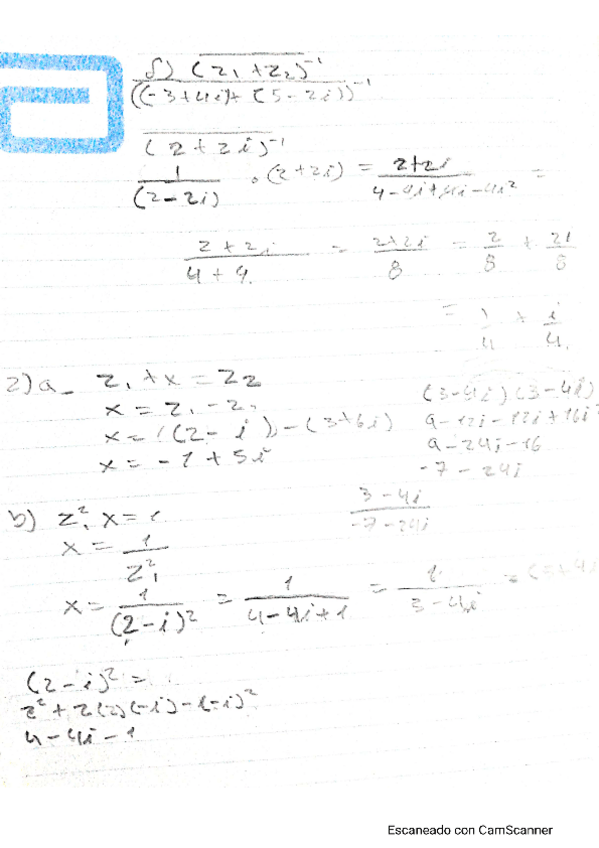 f) (z₁ + z₂)⁻¹
((-3+4i)+(5-2i))⁻¹
(2+2i)⁻¹
1/(2-2i) · (2+2i) = 2+2i/4-4i+4i-4i² =
2+2i/4+4. = 2+2i/8 = 2/8 + 2i/8
= 1/4 + i/4.
2) a_ z₁ + x = z2
x =
x = (2- i) - (3+6i)
x = -1 + 5i
(3-4i)(3-4i)
9-12i-12i+16i²
9-24i-16
-7-24i
3-4i/-7-24i
b) z²₁ x = 1
x = 1/z²₁
x = 1/(2-i)² = 1/4-4i+1 = 1/3-4i =
(2-i)² =
2²+2(2)(-i)-(-i)²
4-4i-1
Escaneado con CamScanner